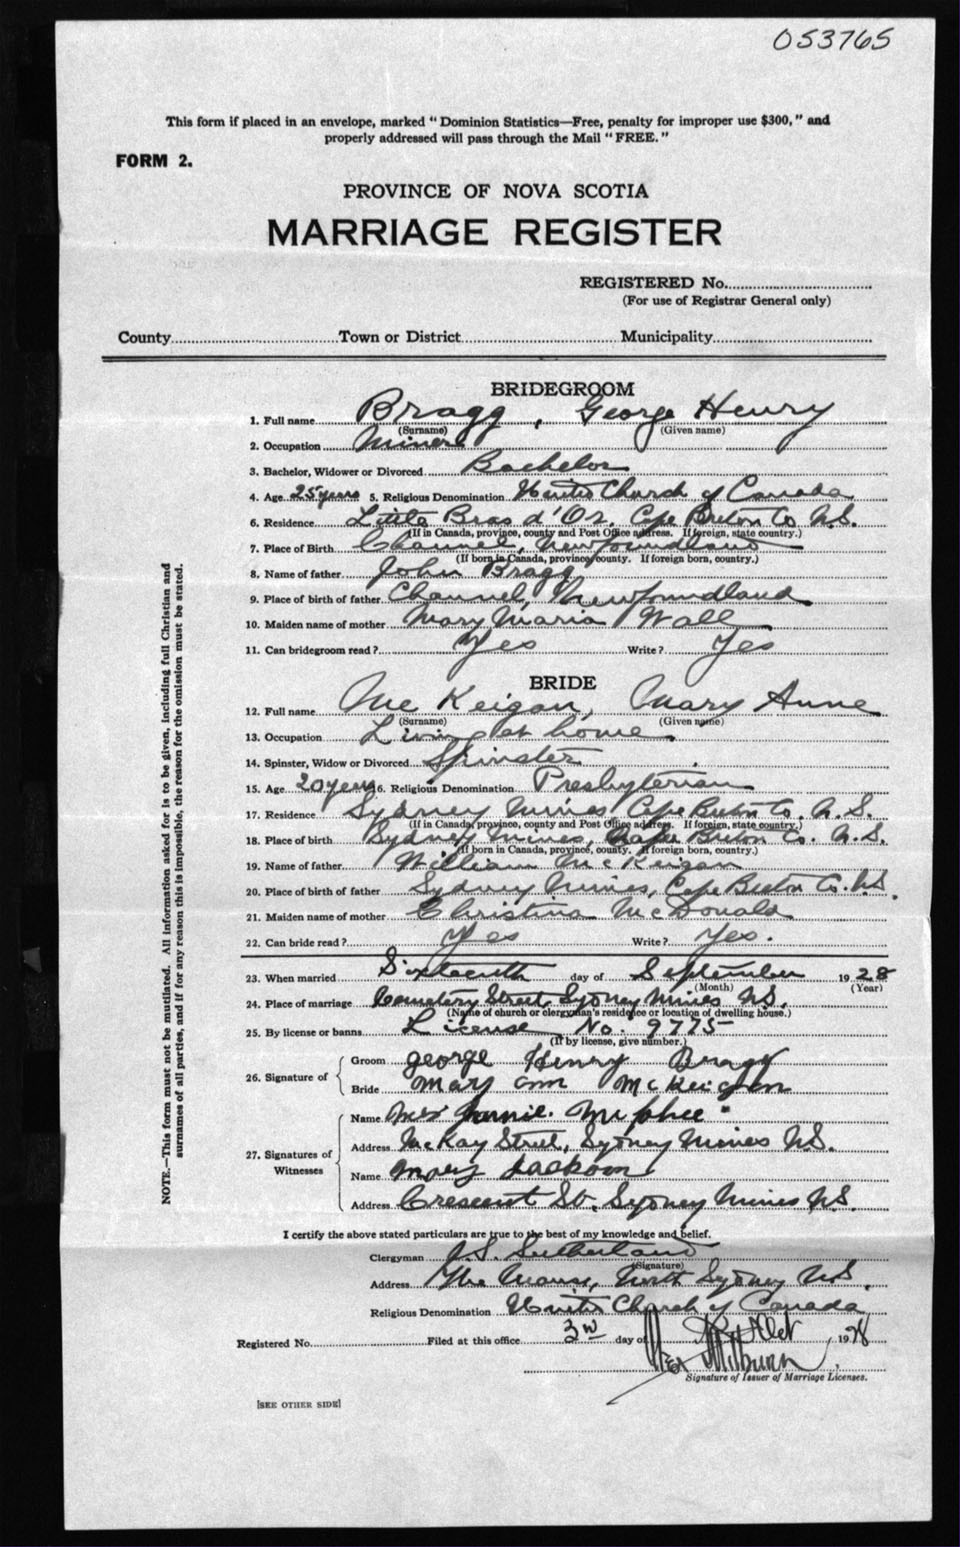 053765
This form if placed in an envelope, marked " Dominion Statistics—Free, penalty for improper use $300, " and
properly addressed will pass through the Mail " FREE. "
FORM 2.
PROVINCE OF NOVA SCOTIA
MARRIAGE REGISTER
REGISTERED No.
(For use of Registrar General only)
County Town or District Municipality
BRIDEGROOM
1. Full name Bragg, George Henry
(Surname) (Given name)
2. Occupation Miner
3. Bachelor, Widower or Divorced Bachelor
4. Age 25 years 5. Religious Denomination United Church of Canada
6. Residence Little Bras d'Or, Cape Breton Co. N.S.
(If in Canada, province, county and Post Office address. If foreign, state country.)
7. Place of Birth Channel, Newfoundland
(If born in Canada, province, county. If foreign born, country.)
8. Name of father John Bragg
9. Place of birth of father Channel, Newfoundland
10. Maiden name of mother Mary Maria Wall
11. Can bridegroom read? Yes Write? Yes
BRIDE
12. Full name McKeigan, Mary Anne
(Surname) (Given name)
13. Occupation Living at home.
14. Spinster, Widow or Divorced Spinster
15. Age 20 years 16. Religious Denomination Presbyterian
17. Residence Sydney Mines, Cape Breton Co. N.S.
(If in Canada, province, county and Post Office address. If foreign, state country.)
18. Place of birth Sydney Mines, Cape Breton Co. N.S.
(If born in Canada, province, county. If foreign born, country.)
19. Name of father William McKeigan
20. Place of birth of father Sydney Mines, Cape Breton Co. N.S.
21. Maiden name of mother Christina McDonald
22. Can bride read? Yes Write? Yes.
23. When married Sixteenth day of September 1928
(Month) (Year)
24. Place of marriage Cemetery Street, Sydney Mines N.S.
(Name of church or clergyman's residence or location of dwelling house.)
25. By license or banns License No. 9775
(If by license, give number.)
26. Signature of Groom George Henry Bragg
Bride Mary Ann McKeigan
27. Signatures of Witnesses
Name Mrs McPhee
Address McKay Street, Sydney Mines N.S.
Name Mary Jackson
Address Crescent St. Sydney Mines N.S.
I certify the above stated particulars are true to the best of my knowledge and belief.
Clergyman Sutherland
(Signature)
Address The Manse, North Sydney N.S.
Religious Denomination United Church of Canada
Registered No. Filed at this office 3rd day of Oct 1928
Milburn
Signature of Issuer of Marriage Licenses.
[SEE OTHER SIDE]
NOTE.—This form must not be mutilated. All information asked for is to be given, including full Christian and
surnames of all parties, and if for any reason this is impossible, the reason for the omission must be stated.